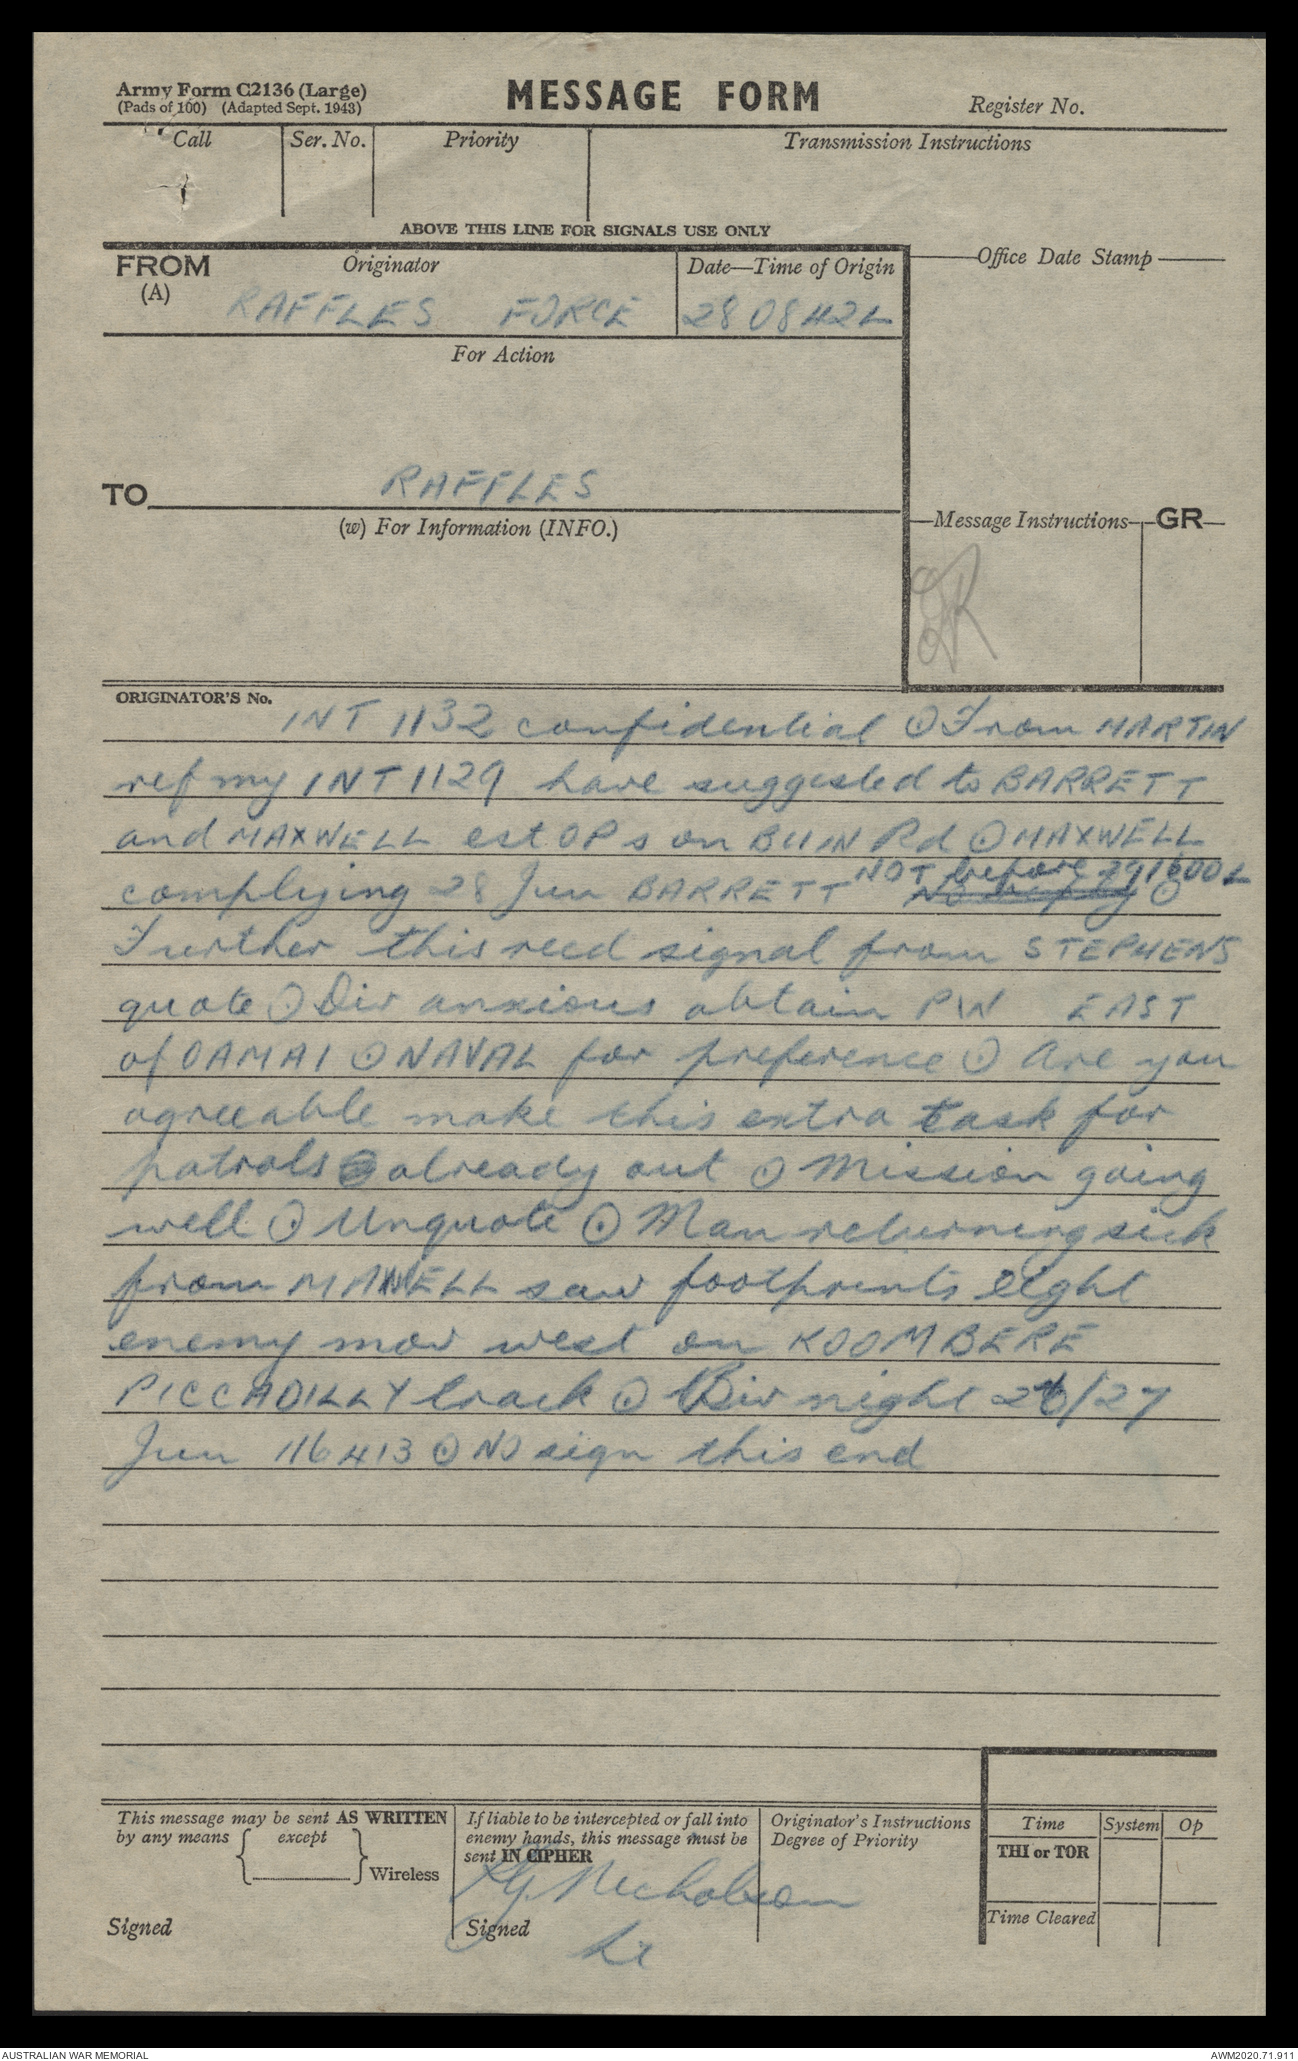 Army Form C2136 (Large)
(Pads of 100) (Adapted Sept. 1943)
MESSAGE FORM
Register No.
Call
Ser. No.
Priority
Transmission Instructions
ABOVE THIS LINE FOR SIGNALS USE ONLY
FROM
(A)
Originator
Date—Time of Origin
Office Date Stamp
RAFFLES FORCE
280842L
For Action
TO
RAFFLES
(w) For Information (INFO.)
Message Instructions
GR
ORIGINATOR'S No.
INT 1132 confidential ⊙ From MARTIN
ref my INT 1129 have suggested to BARRETT
and MAXWELL est OPs on BUIN Rd ⊙ MAXWELL
NOT before 291600L
complying 28 Jun BARRETT ⊙
Further this recd signal from STEPHENS
quote ⊙ Div anxious obtain PW EAST
of OAMAI ⊙ NAVAL for preference ⊙ Are you
agreeable make this extra task for
patrols already out ⊙ Mission going
well ⊙ Unquote ⊙ Man returning sick
from MAXWELL saw footprints eight
enemy mov west on KOOMBERE
PICCADILLY track ⊙ Biv night 26/27
Jun 116413 ⊙ NO sign this end
This message may be sent AS WRITTEN
by any means { except }
Wireless
Signed
If liable to be intercepted or fall into
enemy hands, this message must be
sent IN CIPHER
Nicholson
Signed
Lt
Originator's Instructions
Degree of Priority
Time
System
Op
THI or TOR
Time Cleared
AUSTRALIAN WAR MEMORIAL
AWM2020.71.911